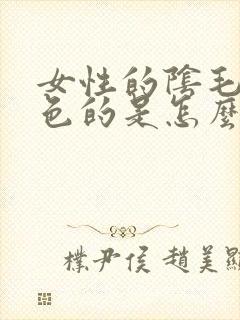 女性的陰毛
色的是怎麼
樸尹侯 趙美顯